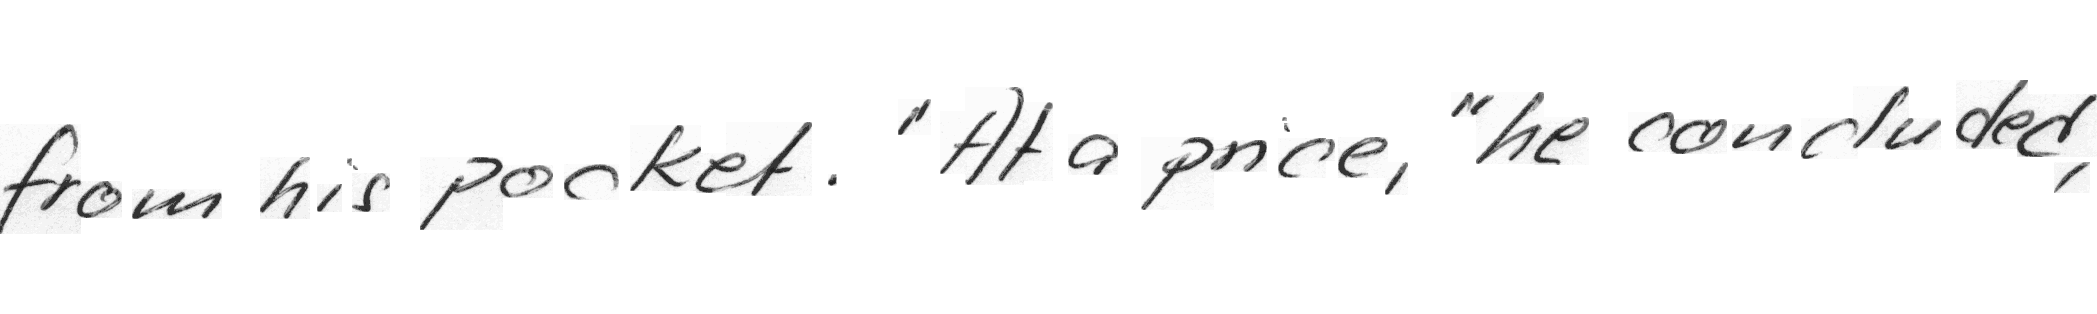 from his pocket. "At a price," he concluded,